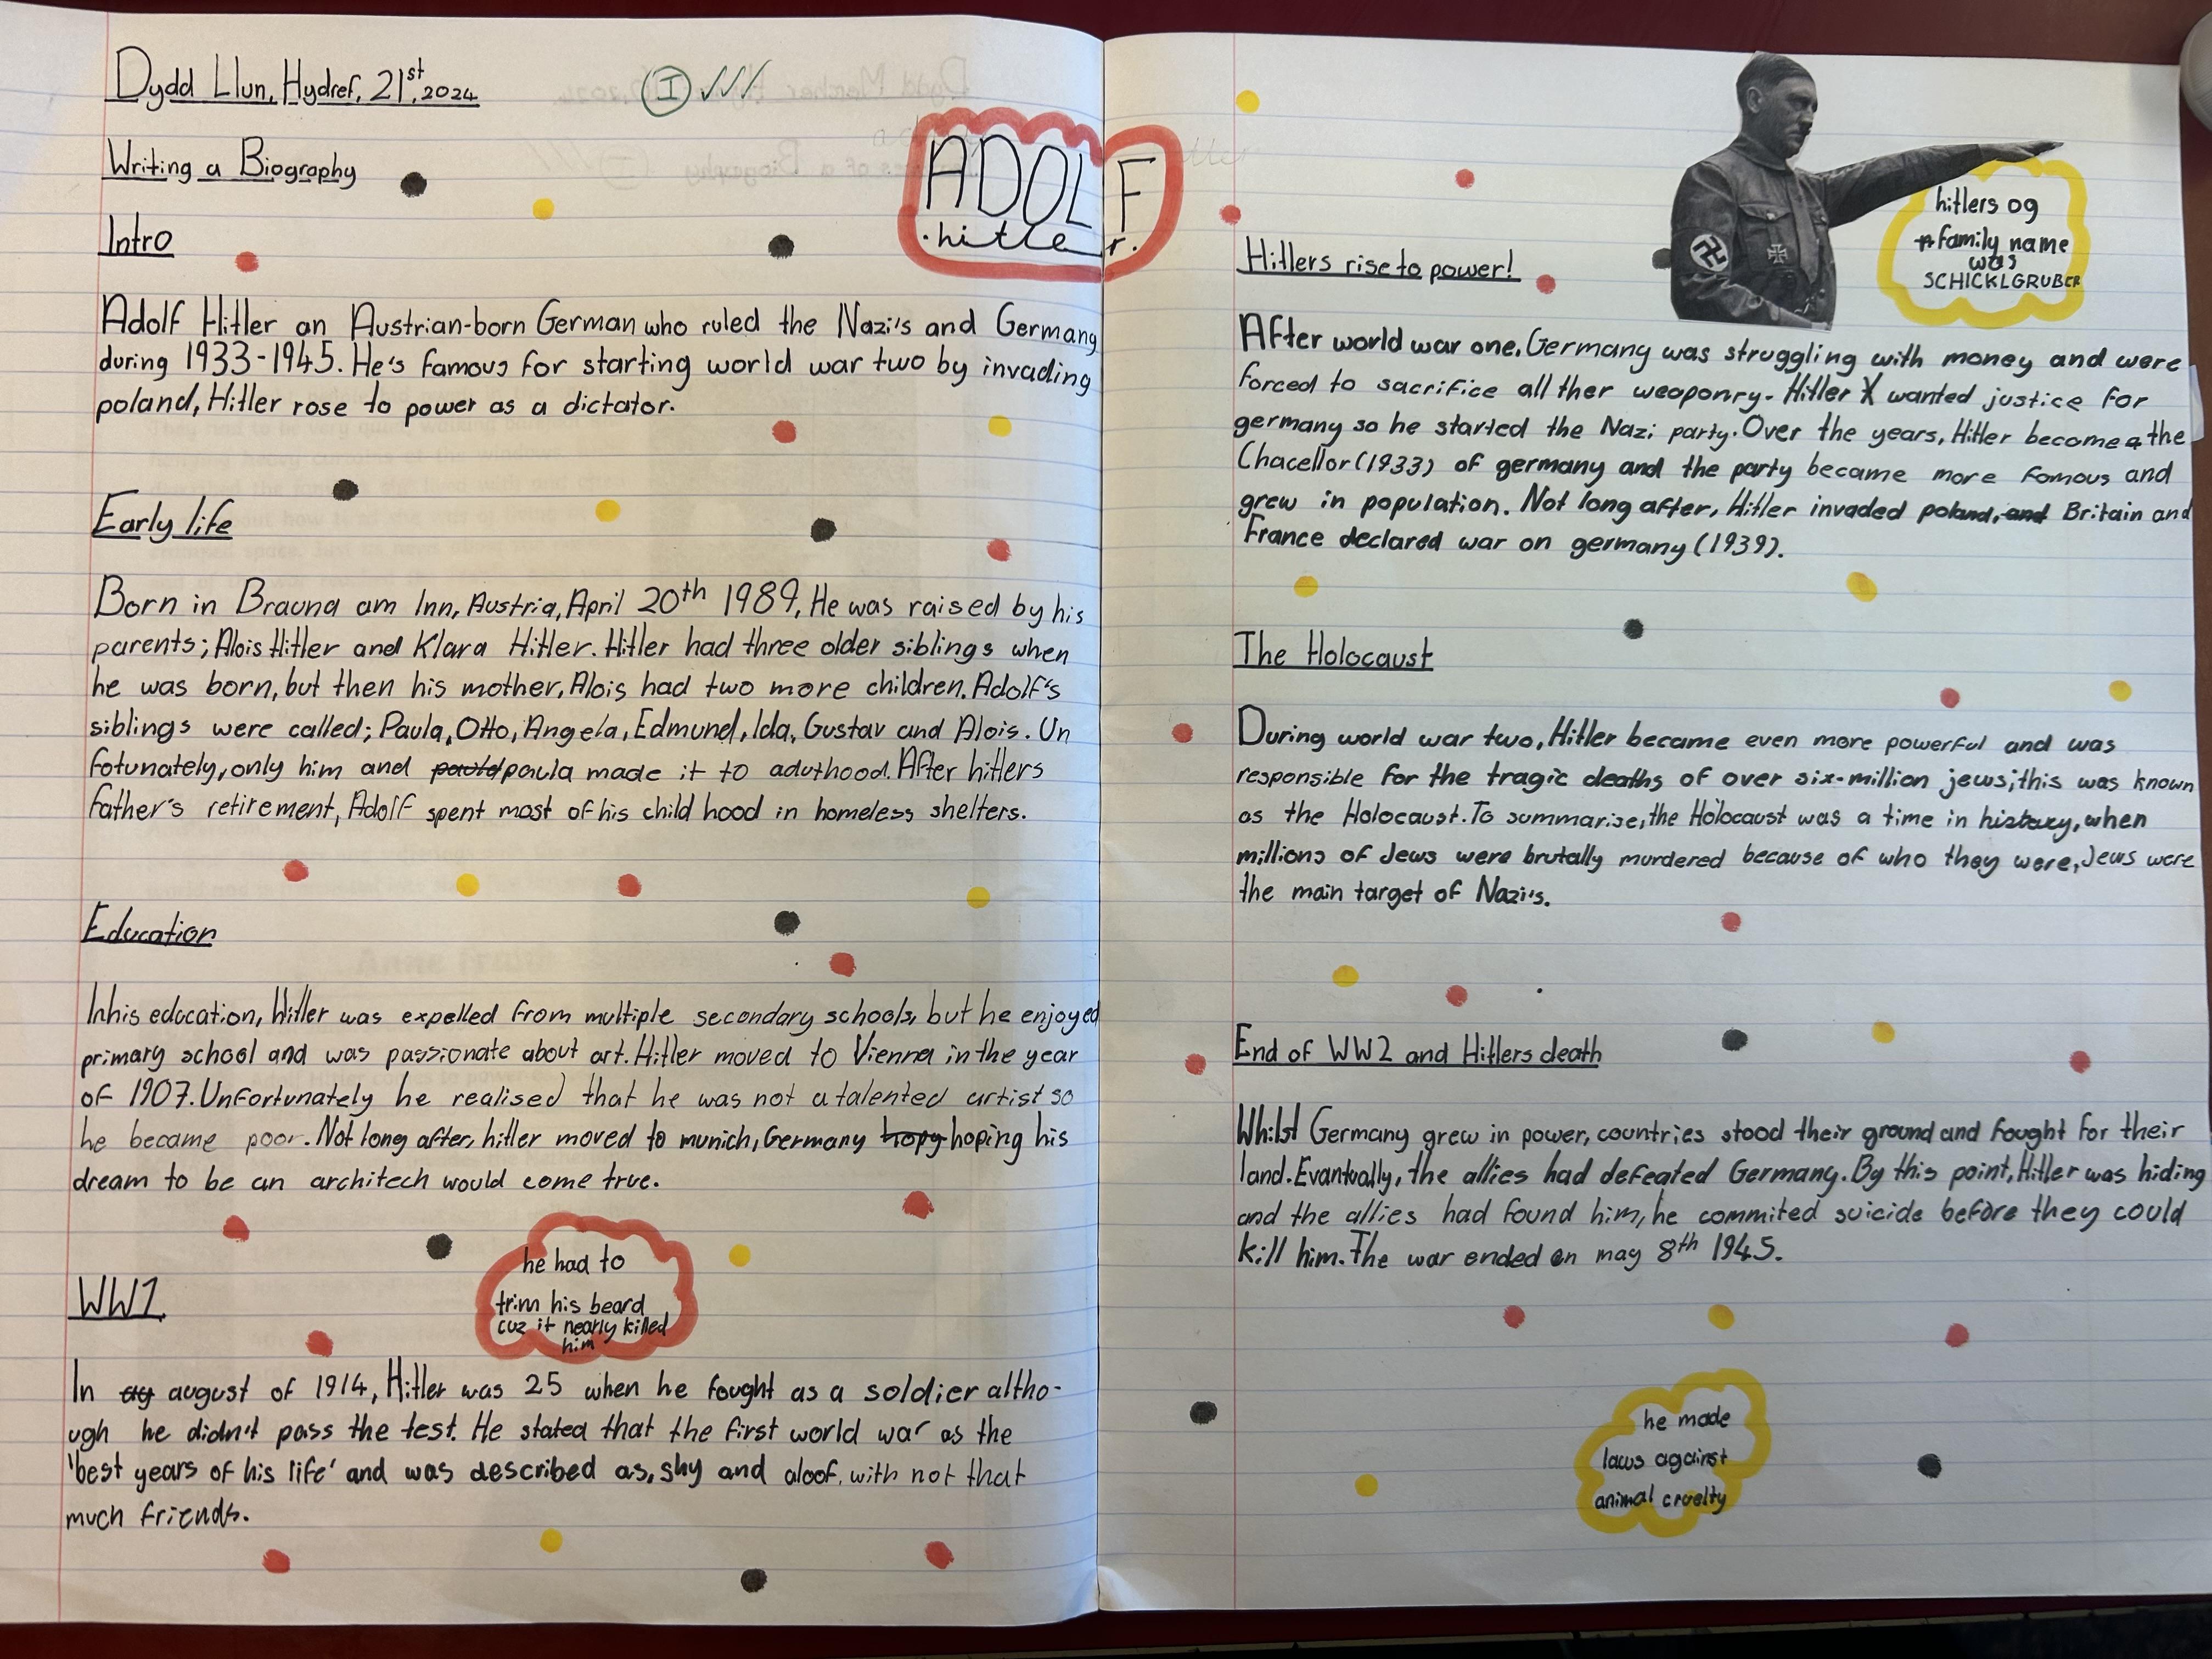 Dydd Llun, Hydref, 21st, 2024
I
Writing a Biography
ADOLF
.hitler.
Intro
Adolf Hitler an Austrian-born German who ruled the Nazi's and Germany
during 1933-1945. He's famous for starting world war two by invading
poland, Hitler rose to power as a dictator.
Early life
Born in Brauna am Inn, Austria, April 20th 1989, He was raised by his
parents; Alois Hitler and Klara Hitler. Hitler had three older siblings when
he was born, but then his mother, Alois had two more children. Adolf's
siblings were called; Paula, Otto, Angela, Edmund, Ida, Gustav and Alois. Un
fotunately, only him and paula made it to aduthood. After hitlers
father's retirement, Adolf spent most of his child hood in homeless shelters.
Education
In his education, Hitler was expelled from multiple secondary schools, but he enjoyed
primary school and was passionate about art. Hitler moved to Vienna in the year
of 1907. Unfortunately he realised that he was not a talented artist so
he became poor. Not long after, hitler moved to munich, Germany hopy hoping his
dream to be an architech would come true.
he had to
trim his beard
cuz it nearly killed
him
WW1
In ag august of 1914, Hitler was 25 when he fought as a soldier altho-
ugh he didn't pass the test. He stated that the first world war as the
'best years of his life' and was described as, shy and aloof, with not that
much friends.
hitlers og
family name
was
SCHICKLGRUBER
Hitlers rise to power!
After world war one, Germany was struggling with money and were
forced to sacrifice all ther weaponry. Hitler wanted justice for
germany so he started the Nazi party. Over the years, Hitler become the
Chacellor (1933) of germany and the party became more famous and
grew in population. Not long after, Hitler invaded poland, and Britain and
France declared war on germany (1939).
The Holocaust
During world war two, Hitler became even more powerful and was
responsible for the tragic deaths of over six-million jews; this was known
as the Holocaust. To summarise, the Holocaust was a time in history, when
millions of Jews were brutally murdered because of who they were, Jews were
the main target of Nazi's.
End of WW2 and Hitlers death
Whilst Germany grew in power, countries stood their ground and fought for their
land. Evantually, the allies had defeated Germany. By this point, Hitler was hiding
and the allies had found him, he commited suicide before they could
kill him. The war ended on may 8th 1945.
he made
laws against
animal cruelty